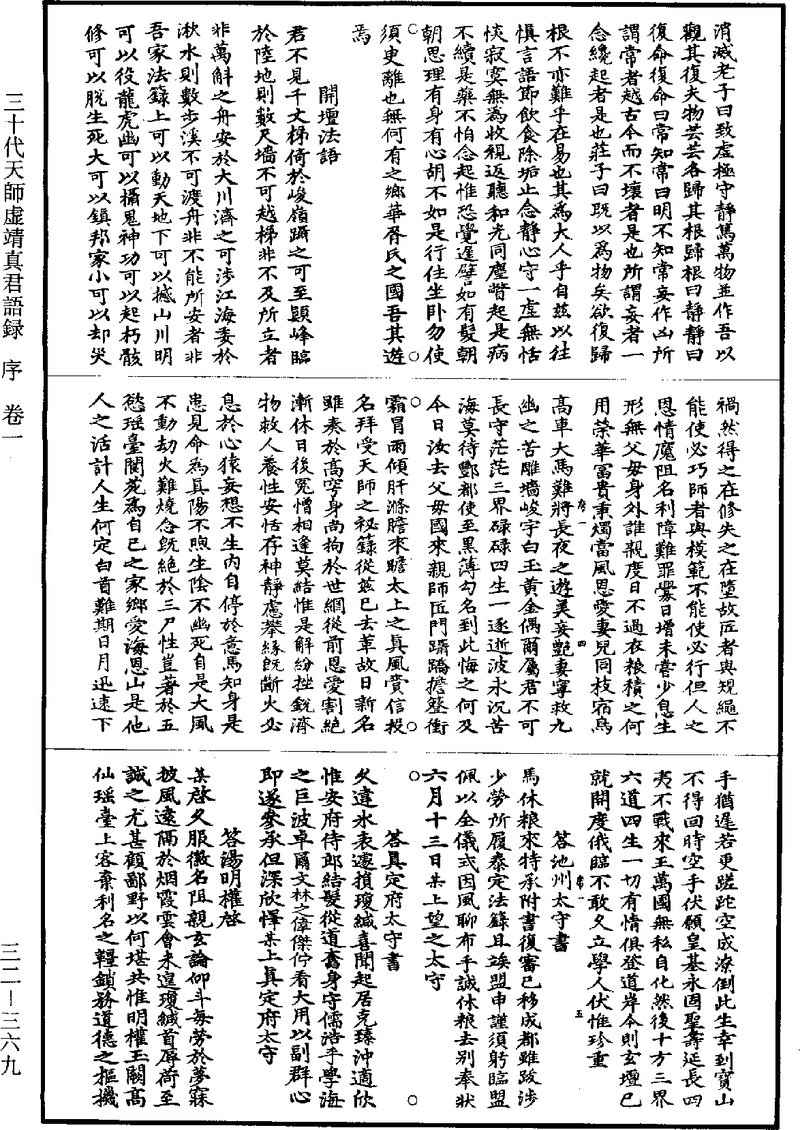 消滅老子曰致虛極守靜篤萬物並作吾以
觀其復夫物芸芸各歸其根歸根曰靜靜曰
復命復命曰常知常曰明不知常妄作凶所
謂常者越古今而不壞者是也所謂妄者一
念纔起者是也莊子曰既以爲物矣欲復歸
根不亦難乎在易也其爲大人乎自兹以往
慎言語節飲食除垢止念靜心守一虛無恬
惔寂寞無爲收視返聽和光同塵瞥起是病
不續是藥不怕念起惟恐覺遲譬如有髮朝
朝思理有身有心胡不如是行住坐卧勿使
須臾離也無何有之鄉華胥氏之國吾其遊
焉
開壇法語
君不見千丈梯倚於峻嶺躡之可至顛峰臨
於陸地則數尺墻不可越梯非不及所立者
非萬斛之舟安於大川濟之可涉江海委於
湫水則數步溪不可渡舟非不能所安者非
吾家法籙上可以動天地下可以撼山川明
可以役龍虎幽可以攝鬼神功可以起朽骸
修可以脱生死大可以鎮邦家小可以却災
禍然得之在修失之在墮故匠者與規繩不
能使必巧師者與模範不能使必行但人之
恩情魔阻名利障難罪釁日增未嘗少息生
形無父母身外誰親度日不過衣粮積之何
用榮華冨貴秉燭當風恩愛妻兒同枝宿鳥
高車大馬難將長夜之遊美妾艷妻寧救九
幽之苦雕墻峻宇白玉黃金偶爾屬君不可
長守茫茫三界碌碌四生一逐逝波永沉苦
海莫待酆都使至黑薄勾名到此悔之何及
今日汝去父母國來親師匠門躡蹻擔簦衝
霜冒雨傾肝滌膽來瞻太上之真風賫信投
名拜受天師之秘籙從兹已去革故日新名
雖奏於高穹身尚拘於世網從前恩愛割絶
漸休日後冤憎相逢莫結惟是解紛挫銳濟
物救人養性安恬存神靜慮攀緣既斷火必
息於心猿妄想不生内自停於意馬知身是
患見命爲真陽不煦生陰不幽死自是大風
不動劫火難燒念既絶於三尸性豈著於五
慾瑶臺閬苑爲自己之家鄉愛海恩山是他
人之活計人生何定白首難期日月迅速下
手猶遲若更蹉跎空成潦倒此生幸到寶山
不得回時空手伏願皇基永固聖壽延長四
夷不戰來王萬國無私自化然後十方三界
六道四生一切有情俱登道岸今則玄壇已
就開度俄臨不敢久立學人伏惟珍重
答池州太守書
馬休粮來特承附書復審已移成都雖跋涉
少勞所履泰定法籙且誒盟申謹須躬臨盟
佩以全儀式因風聊布手誠休粮去别奉狀
六月十三日某上望之太守
答真定府太守書
久違氷表遽損瓊緘喜聞起居克臻沖適欣
惟安府侍郎結髮從道奮身守儒浩乎學海
之巨波卓爾文林之偉傑佇看大用以副群心
即遂參承但深欣懌某上真定府太守
答湯明權啓
某啓久服徽名阻親玄論仰斗每勞於夢寐
披風遠隔於烟霞雲會未遑瓊緘首辱荷至
誠之尤甚顧鄙野以何堪共惟明權玉闕高
仙瑶臺上客棄利名之韁鎖務道德之樞機
三十代天師虛靖真君語録 序 卷一
三二－三六九
序一 四
卷一 五